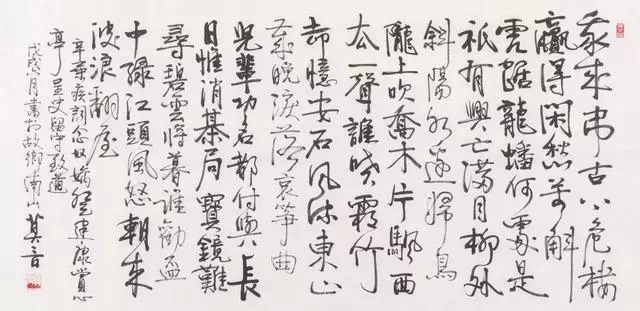 我来弔古上危樓
贏得閑愁千斛
虎踞龍蟠何處是
祇有興亡滿目柳外
斜陽水邊歸鳥
隴上吹喬木片颿西
去一聲誰噴霜竹
却憶安石風流東山
歲晚淚落哀箏曲
兒輩功名都付與長
日惟消棊局寶鏡難
尋碧雲將暮誰勸盃
中綠江頭風怒朝来
波浪翻屋
辛棄疾詞念奴嬌登建康賞心
亭呈史留守致道
戊戌月書於故鄉南山 莫言